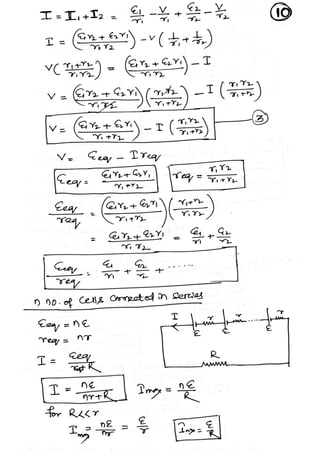 I = I₁ + I₂ = ε₁/r₁ - V/r₁ + ε₂/r₂ - V/r₂
10
I = (ε₁r₂ + ε₂r₁ / r₁r₂) - V(1/r₁ + 1/r₂)
V(r₁+r₂ / r₁r₂) = (ε₁r₂ + ε₂r₁ / r₁r₂) - I
V = (ε₁r₂ + ε₂r₁ / r₁r₂)(r₁r₂ / r₁+r₂) - I(r₁r₂ / r₁+r₂)
V = (ε₁r₂ + ε₂r₁ / r₁+r₂) - I(r₁r₂ / r₁+r₂) 3
V = εeq - I req
εeq = ε₁r₂ + ε₂r₁ / r₁+r₂ req = r₁r₂ / r₁+r₂
εeq/req = (ε₁r₂ + ε₂r₁ / r₁+r₂)(r₁+r₂ / r₁r₂)
= ε₁r₂ + ε₂r₁ / r₁r₂ = ε₁/r₁ + ε₂/r₂
εeq/req = ε₁/r₁ + ε₂/r₂ + ......
n no. of cells connected in series
εeq = nε
req = nr
I = εeq / req+R
I = nε / nr+R Imax = nε/R
for R<<r
Imax = nε/nr = ε/r Imax = ε/R
I r r r
ε ε ε
R